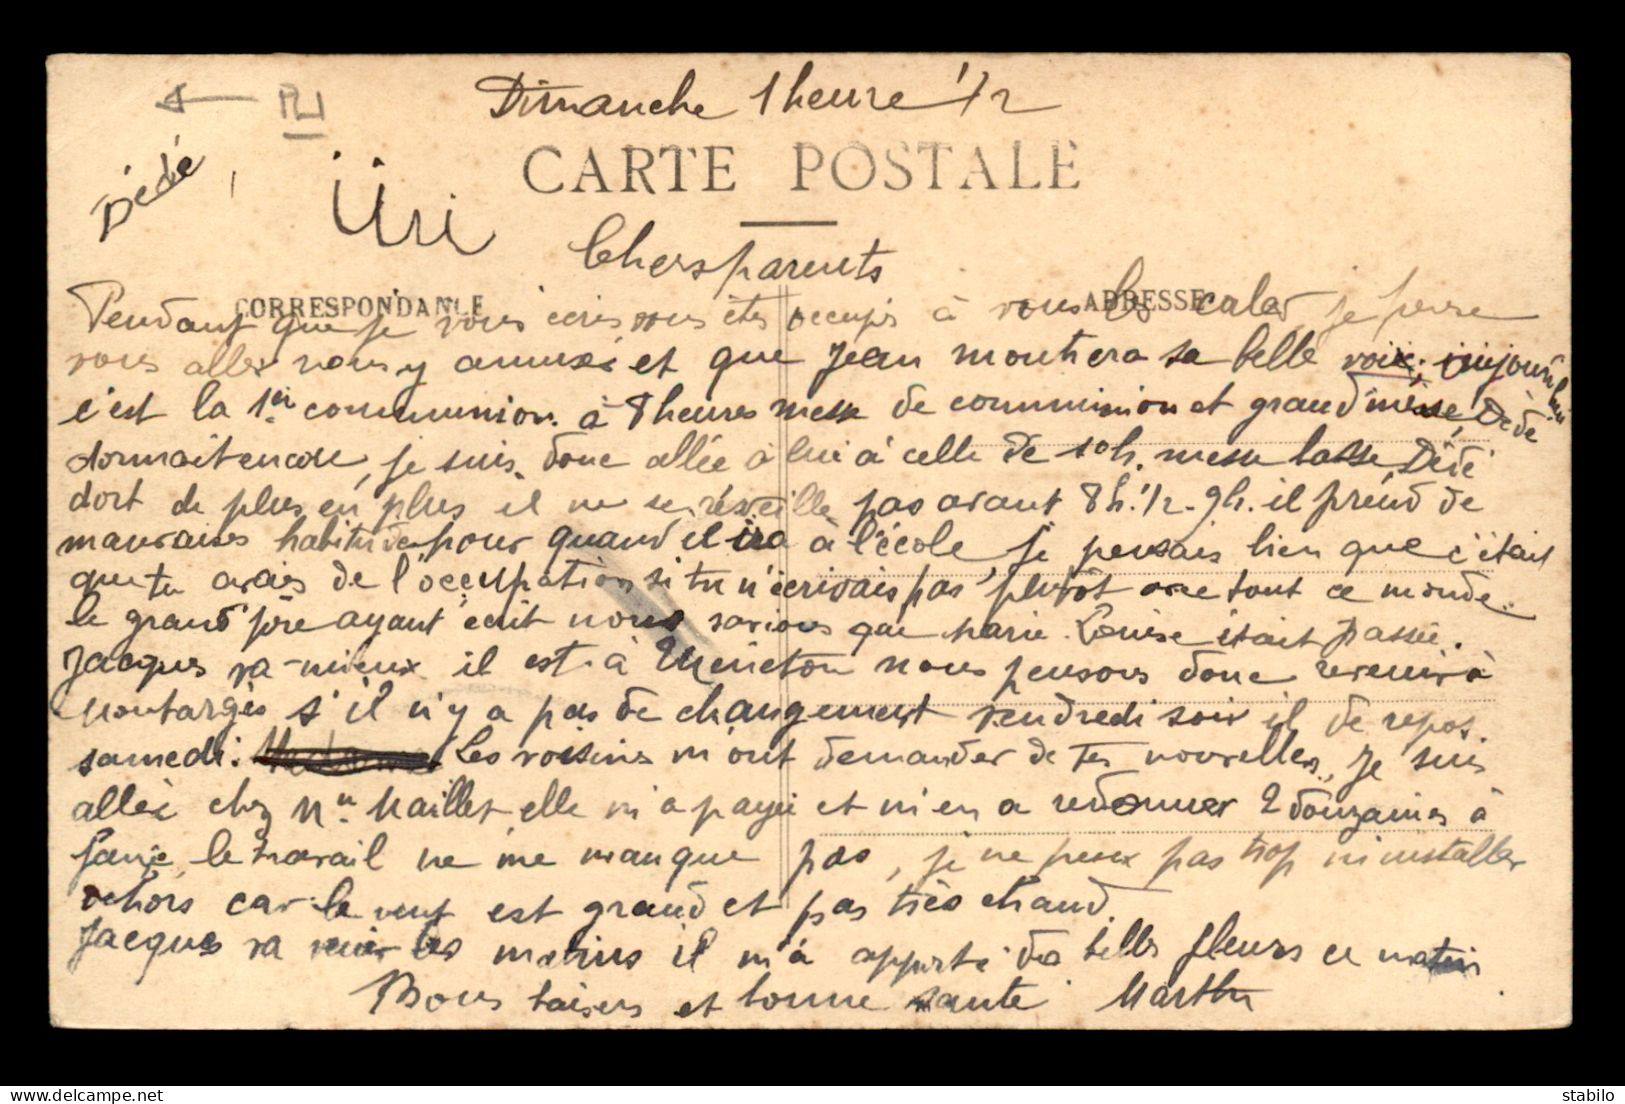 Dimanche 1 heure 1/2
Dédé
CARTE POSTALE
Chers parents
CORRESPONDANCE
ADRESSE
Pendant que je vous écris vous êtes occupés à vous les caler, je pense
vous aller vous y amuser et que Jean montrera sa belle voix, aujourd'hui
c'est la 1er communion à 8 heures messe de communion et grand messe, Dédé
dormait encore, je suis donc allée à lui à celle de 10h. messe basse, Dédé
dort de plus en plus il ne se réveille pas avant 8h.1/2 - 9h. il prend de
mauvaises habitudes pour quand il ira à l'école, je pensais bien que c'était
que tu avais de l'occupation si tu n'écrivais pas plutôt avec tout ce monde.
le grand père ayant écrit nous savions que Marie Louise était passée.
Jacques va mieux il est à Meneton nous pensons donc revenir à
Montargis s'il n'y a pas de changement vendredi soir il de repos
samedi. Les voisines m'ont demander de tes nouvelles, je suis
allée chez Mme Maillet elle m'a payée et m'en a redonner 2 douzaines à
faire, le travail ne me manque pas, je ne peux pas trop m'installer
dehors car le vent est grand et pas très chaud.
Jacques va les matins il m'a apporté des belles fleurs ce matin
Bons baisers et bonne sante Marthe
www.delcampe.net
stabilo